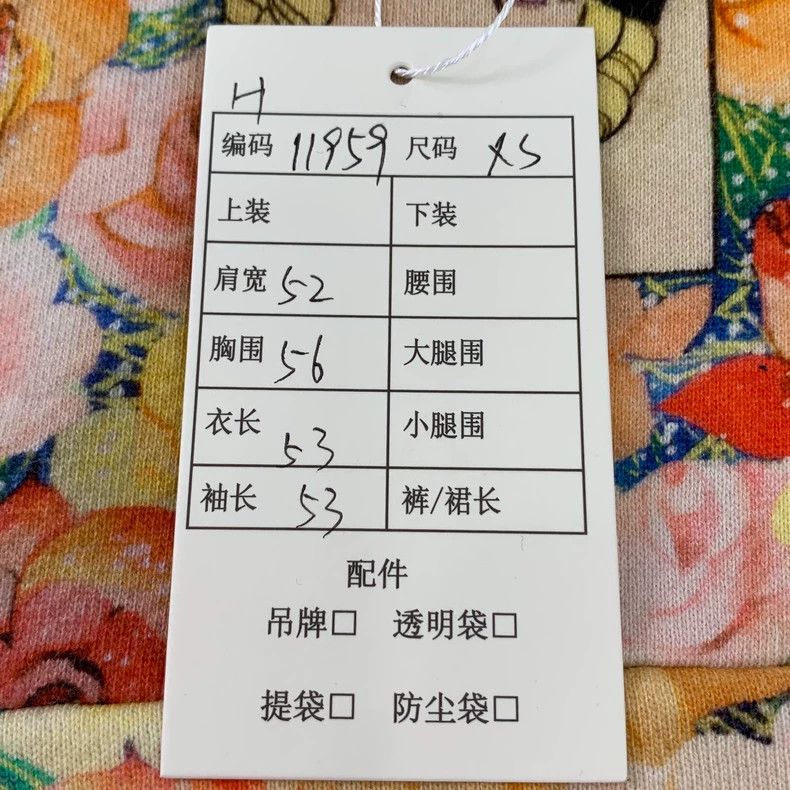 H
编码 11959 尺码 XS
上装 下装
肩宽 52 腰围
胸围 56 大腿围
衣长 53 小腿围
袖长 53 裤/裙长
配件
吊牌□ 透明袋□
提袋□ 防尘袋□